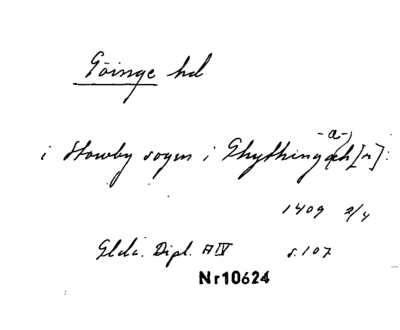 Göinge hd
i Stowby sogn i Ghythingæh[r]:
-a-)
1409 2/4
Glda. Dipl. A IV s. 107
Nr10624